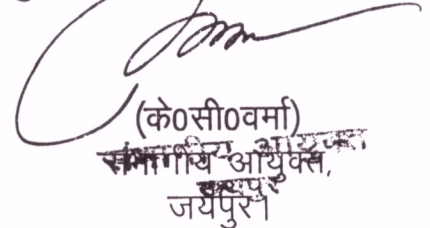 (के0सी0वर्मा)
संभागीय आयुक्त,
जयपुर।